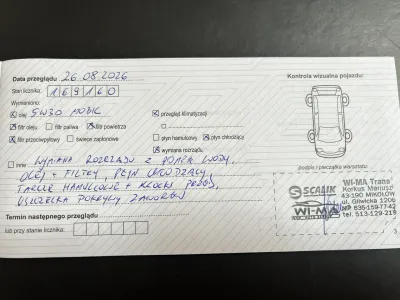 Data przeglądu 26.08.2026
Kontrola wizualna pojazdu:
Stan licznika: 169160
Wymieniono:
olej 5W30 MOBIL
przegląd klimatyzacji
filtr oleju filtr paliwa filtr powietrza
filtr przeciwpyłowy świece zapłonowe płyn hamulcowy płyn chłodzący
wymiana rozrządu
inne WYMIANA ROZRZĄDU Z POMPĄ WODY,
OLEJ + FILTRY, PŁYN CHŁODZĄCY,
TARCZE HAMULCOWE + KLOCKI PRZÓD,
USZCZELKA POKRYWY ZAWORÓW
podpis i pieczątka warsztatu
SCALIK
WI-MA
WI-MA Trans
Korkus Mariusz
43-190 MIKOŁÓW
ul. Gliwicka 120b
NIP 635-159-77-42
tel. 513-129-219
Termin następnego przeglądu
lub przy stanie licznika:
3